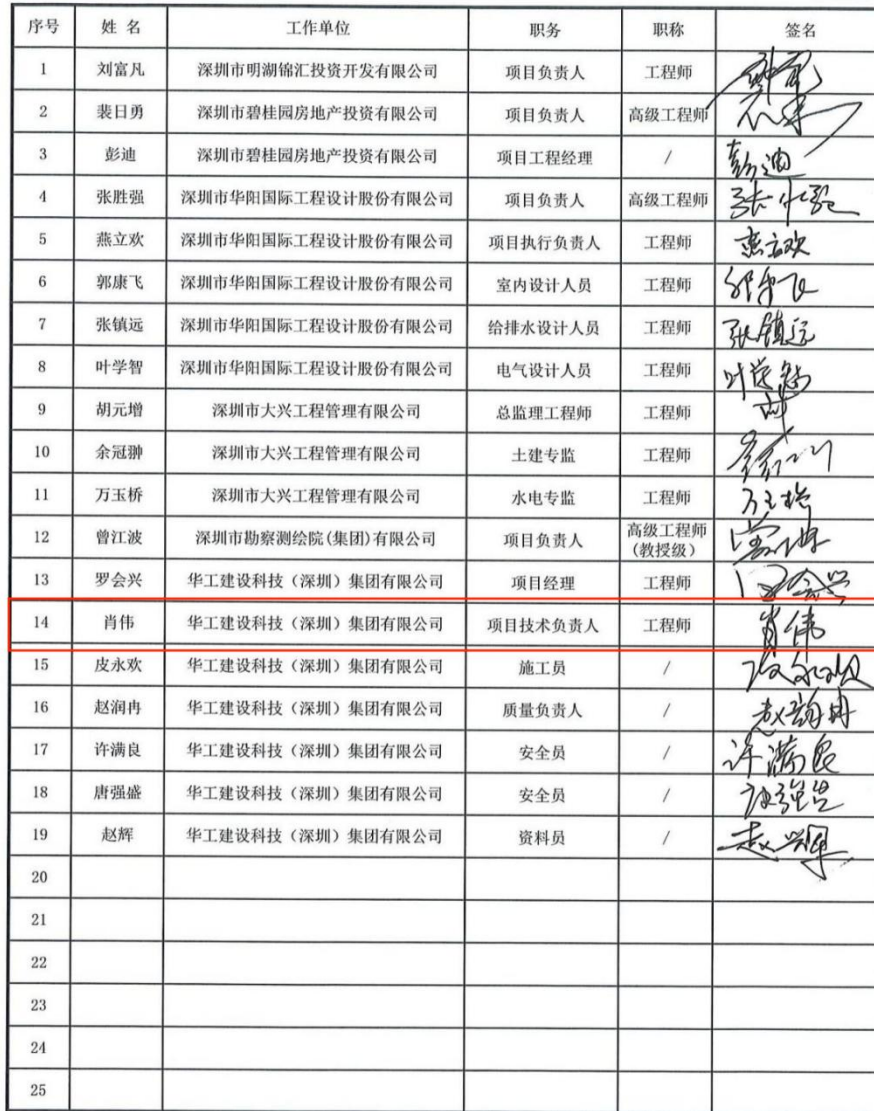 序号 姓 名 工作单位 职务 职称 签名
1 刘富凡 深圳市明湖锦汇投资开发有限公司 项目负责人 工程师
2 裴日勇 深圳市碧桂园房地产投资有限公司 项目负责人 高级工程师
3 彭迪 深圳市碧桂园房地产投资有限公司 项目工程经理 / 彭迪
4 张胜强 深圳市华阳国际工程设计股份有限公司 项目负责人 高级工程师
5 燕立欢 深圳市华阳国际工程设计股份有限公司 项目执行负责人 工程师 燕立欢
6 郭康飞 深圳市华阳国际工程设计股份有限公司 室内设计人员 工程师
7 张镇远 深圳市华阳国际工程设计股份有限公司 给排水设计人员 工程师 张镇远
8 叶学智 深圳市华阳国际工程设计股份有限公司 电气设计人员 工程师 叶学智
9 胡元增 深圳市大兴工程管理有限公司 总监理工程师 工程师
10 余冠翀 深圳市大兴工程管理有限公司 土建专监 工程师
11 万玉桥 深圳市大兴工程管理有限公司 水电专监 工程师 万玉桥
12 曾江波 深圳市勘察测绘院(集团)有限公司 项目负责人 高级工程师
(教授级)
13 罗会兴 华工建设科技（深圳）集团有限公司 项目经理 工程师 罗会兴
14 肖伟 华工建设科技（深圳）集团有限公司 项目技术负责人 工程师 肖伟
15 皮永欢 华工建设科技（深圳）集团有限公司 施工员 /
16 赵润冉 华工建设科技（深圳）集团有限公司 质量负责人 / 赵润冉
17 许满良 华工建设科技（深圳）集团有限公司 安全员 / 许满良
18 唐强盛 华工建设科技（深圳）集团有限公司 安全员 / 唐强盛
19 赵辉 华工建设科技（深圳）集团有限公司 资料员 / 赵辉
20
21
22
23
24
25